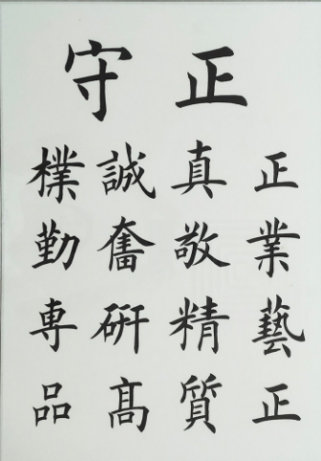 守正
樸誠真正
勤奮敬業
專研精藝
品高質正